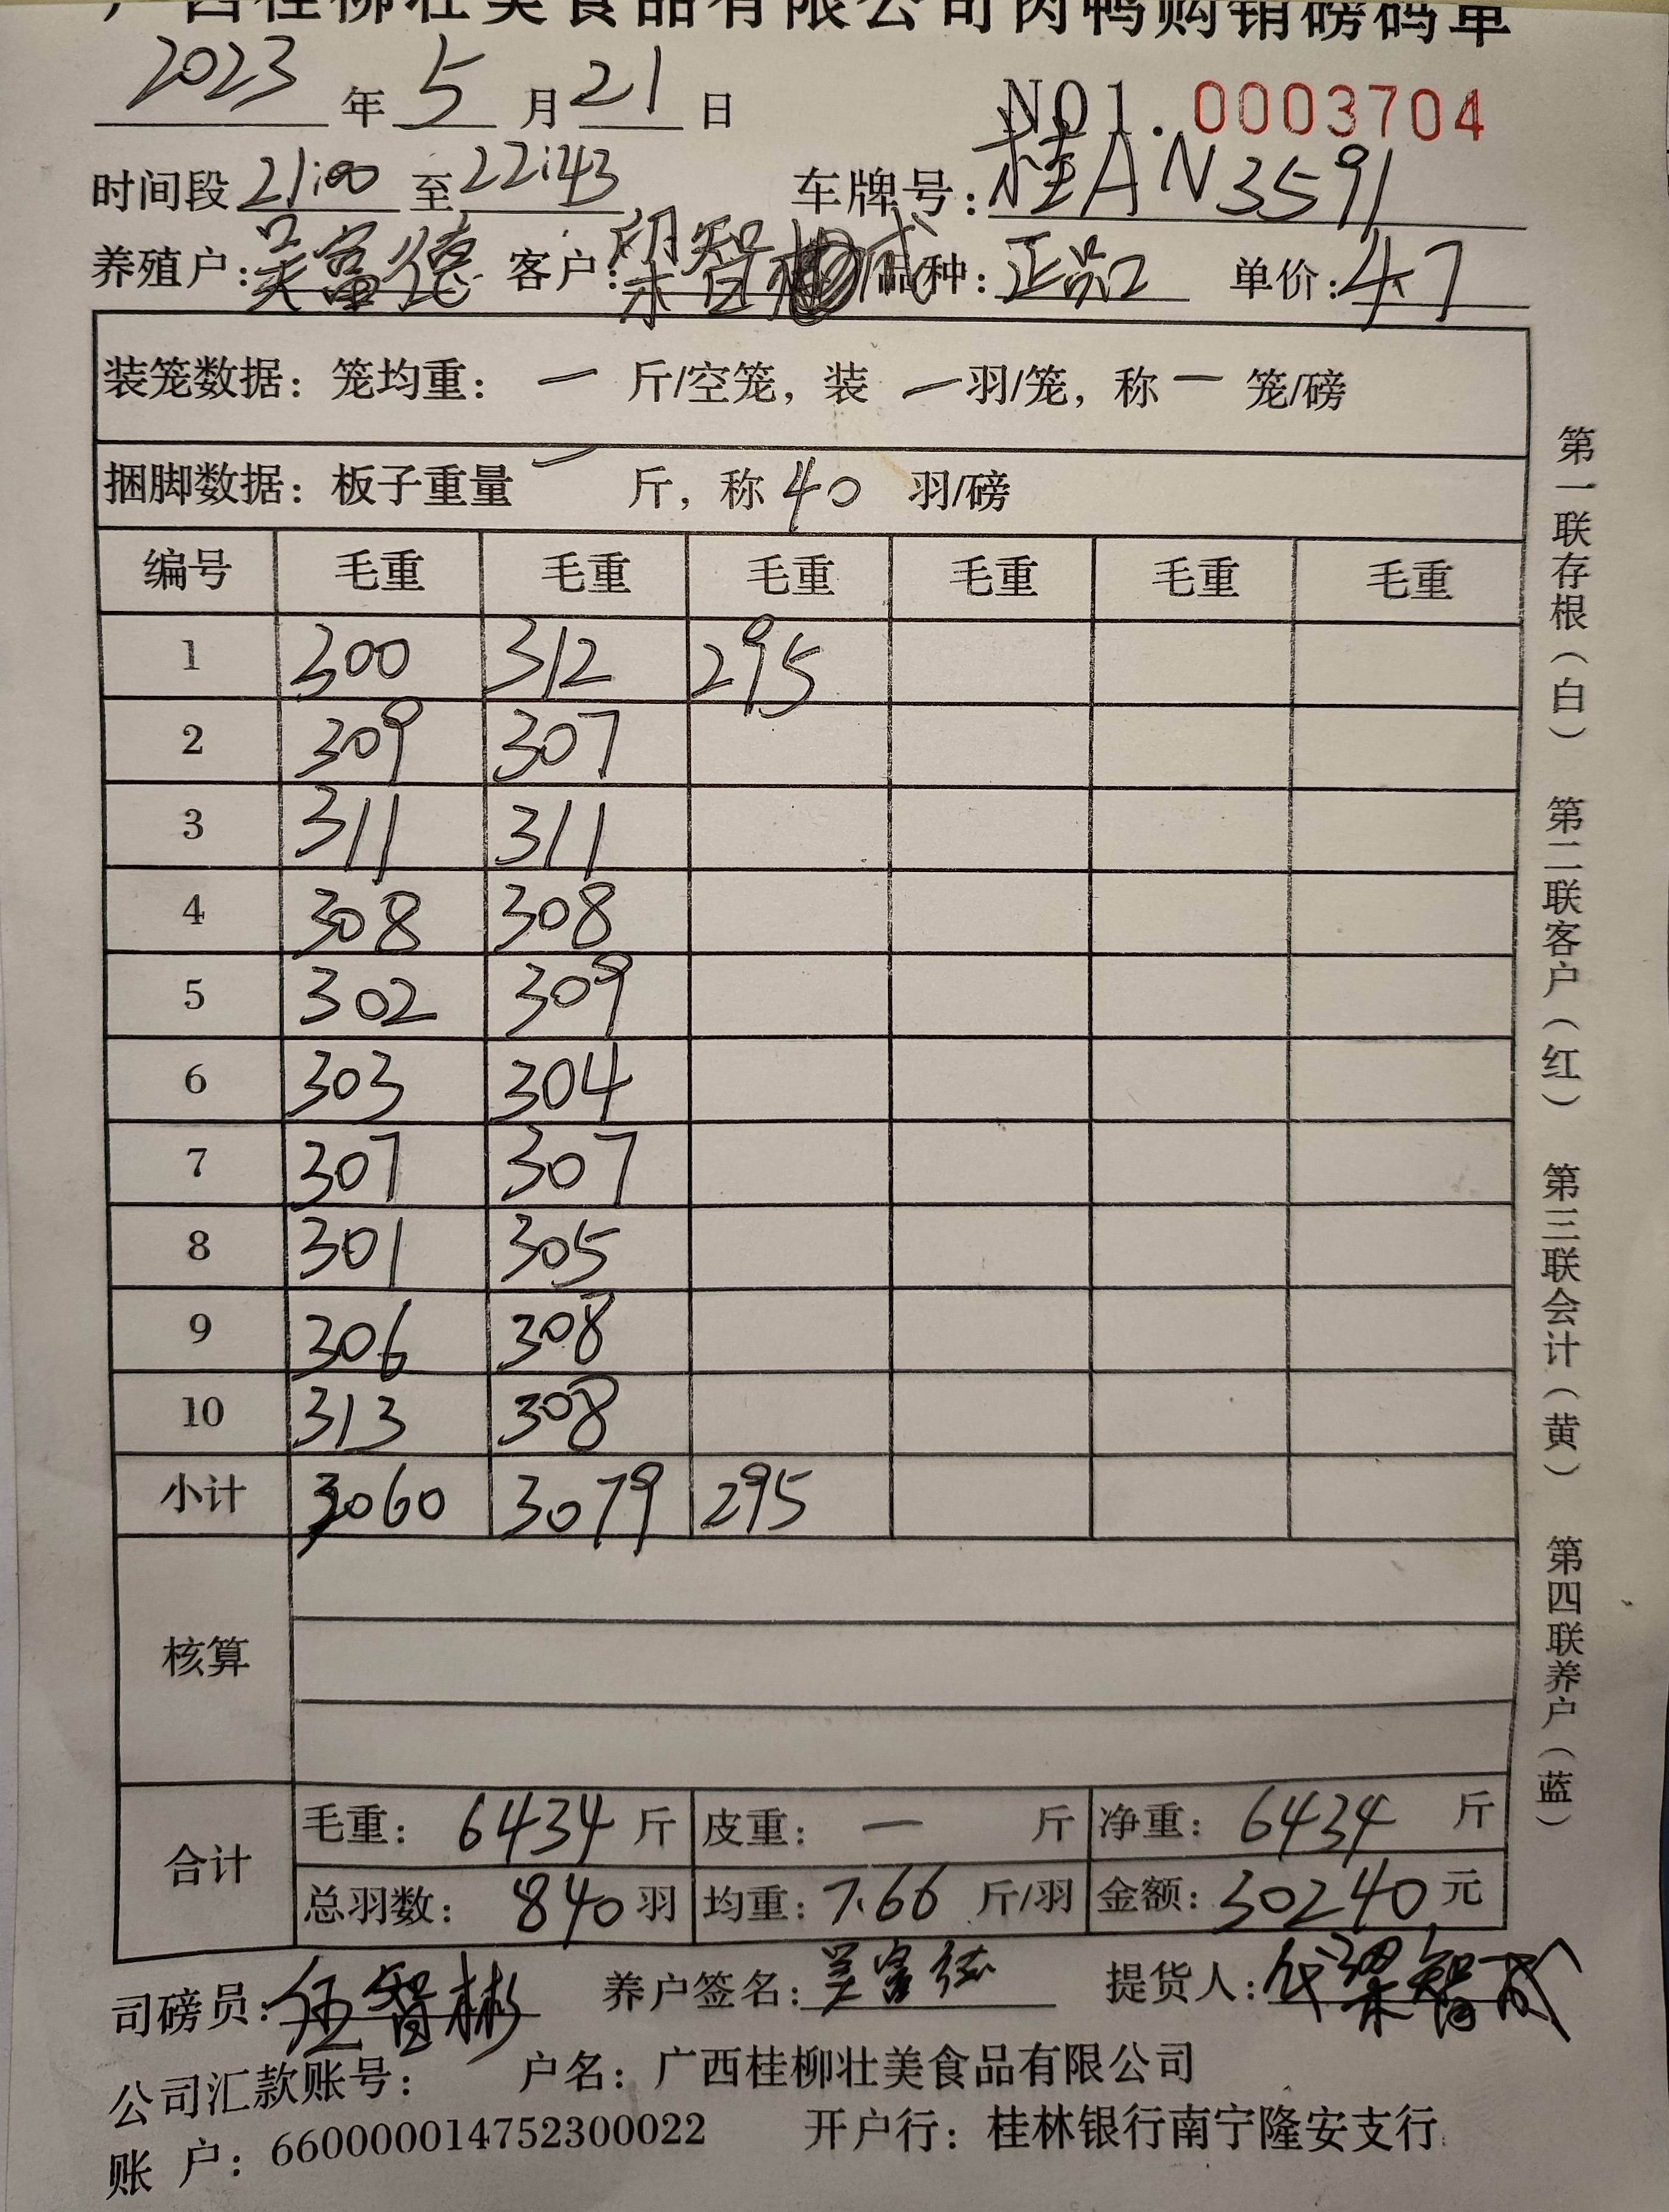 广西桂柳壮美食品有限公司肉鸭购销磅码单
2023 年 5 月 21 日 NO1. 0003704
时间段 21:00 至 22:43 车牌号: 桂AN3591
养殖户: 吴富德 客户: 梁智成 品种: 正品 单价: 4.7
装笼数据: 笼均重: 一 斤/空笼, 装 一 羽/笼, 称 一 笼/磅
捆脚数据: 板子重量 一 斤, 称 40 羽/磅
编号 毛重 毛重 毛重 毛重 毛重 毛重
1 300 312 295
2 309 307
3 311 311
4 308 308
5 302 309
6 303 304
7 307 307
8 301 305
9 306 308
10 313 308
小计 3060 3079 295
核算
合计
毛重: 6434 斤 皮重: 一 斤 净重: 6434 斤
总羽数: 840 羽 均重: 7.66 斤/羽 金额: 30240 元
司磅员: 伍智彬 养户签名: 吴富德 提货人: 代梁智成
公司汇款账号: 户名: 广西桂柳壮美食品有限公司
账 户: 660000014752300022 开户行: 桂林银行南宁隆安支行
第一联存根(白) 第二联客户(红) 第三联会计(黄) 第四联养户(蓝)